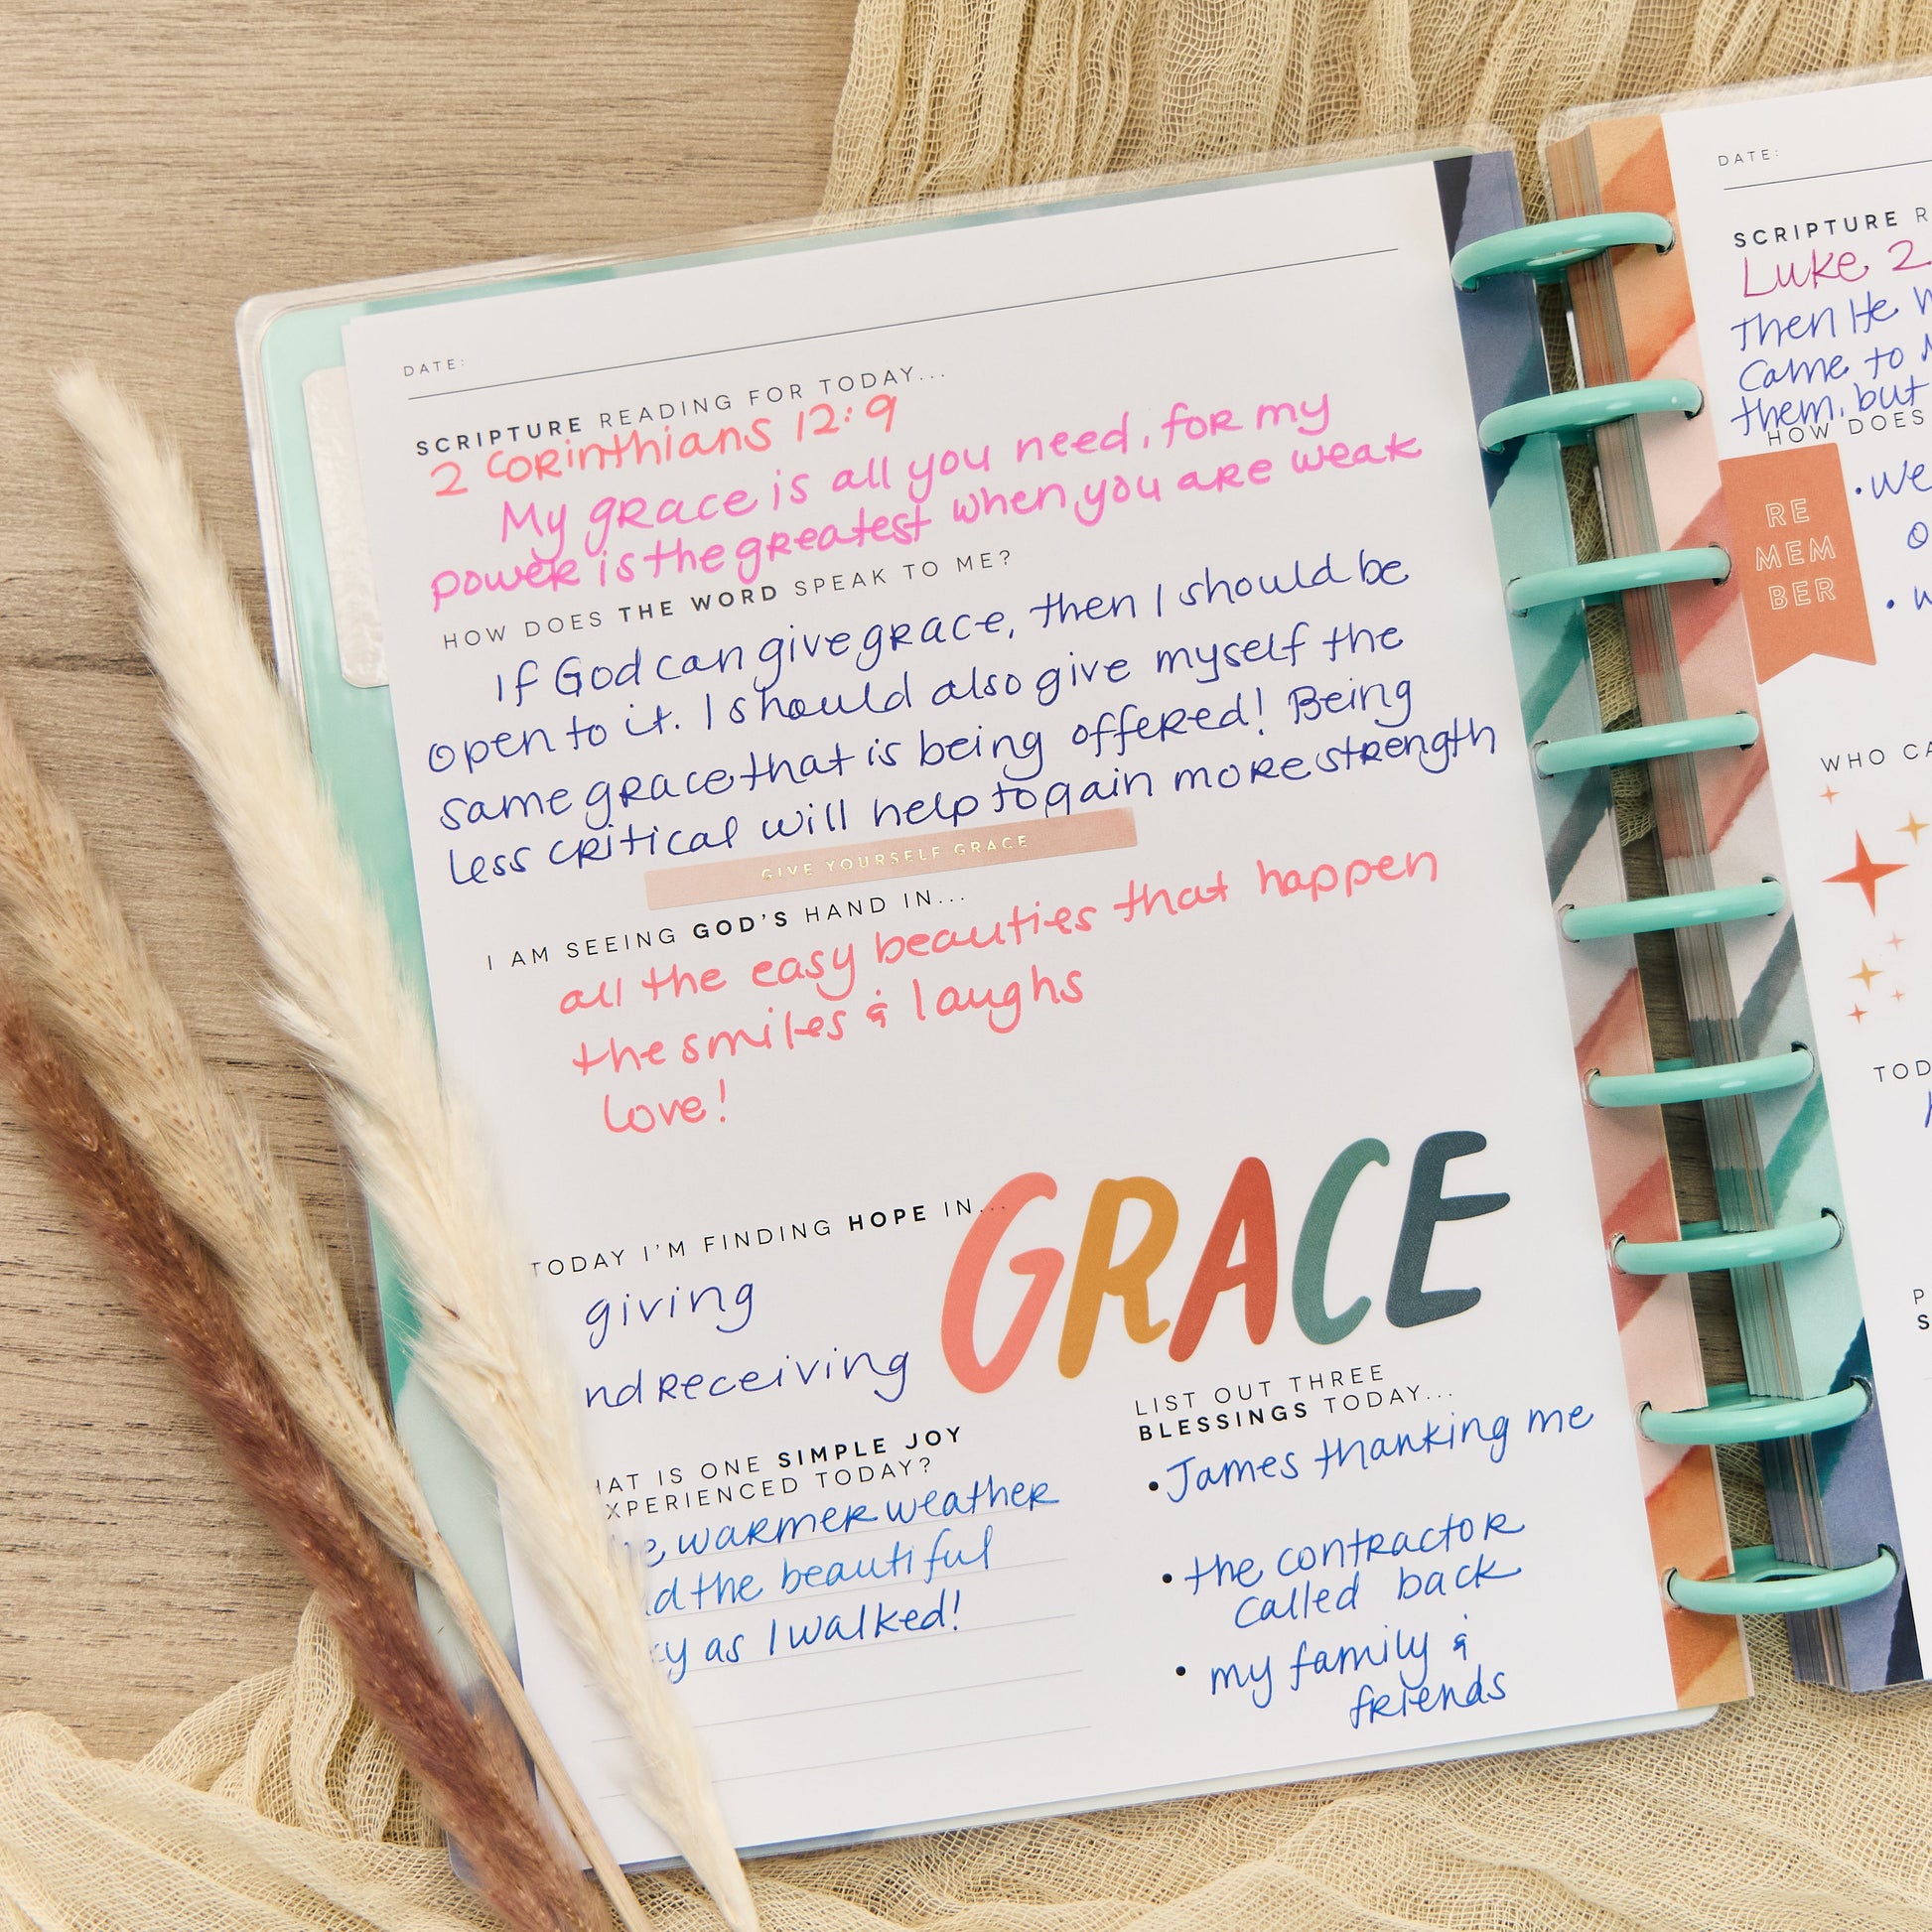 DATE:
SCRIPTURE READING FOR TODAY...
2 Corinthians 12:9
My grace is all you need, for my
power is the greatest when you are weak
HOW DOES THE WORD SPEAK TO ME?
If God can give grace, then I should be
open to it. I should also give myself the
same grace that is being offered! Being
less critical will help to gain more strength
GIVE YOURSELF GRACE
I AM SEEING GOD'S HAND IN...
all the easy beauties that happen
the smiles & laughs
love!
TODAY I'M FINDING HOPE IN...
GRACE
giving
nd receiving
HAT IS ONE SIMPLE JOY
XPERIENCED TODAY?
he warmer weather
d the beautiful
ky as I walked!
LIST OUT THREE
BLESSINGS TODAY...
• James thanking me
• the contractor
called back
• my family &
friends
DATE:
SCRIPTURE R
Luke 2
Then He w
came to
them, but
HOW DOES
RE
MEM
BER
• We
• w
WHO CA
TOD
P
S